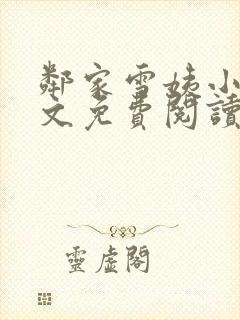 鄰家雪姨小
文免費閱讀
靈虛閣